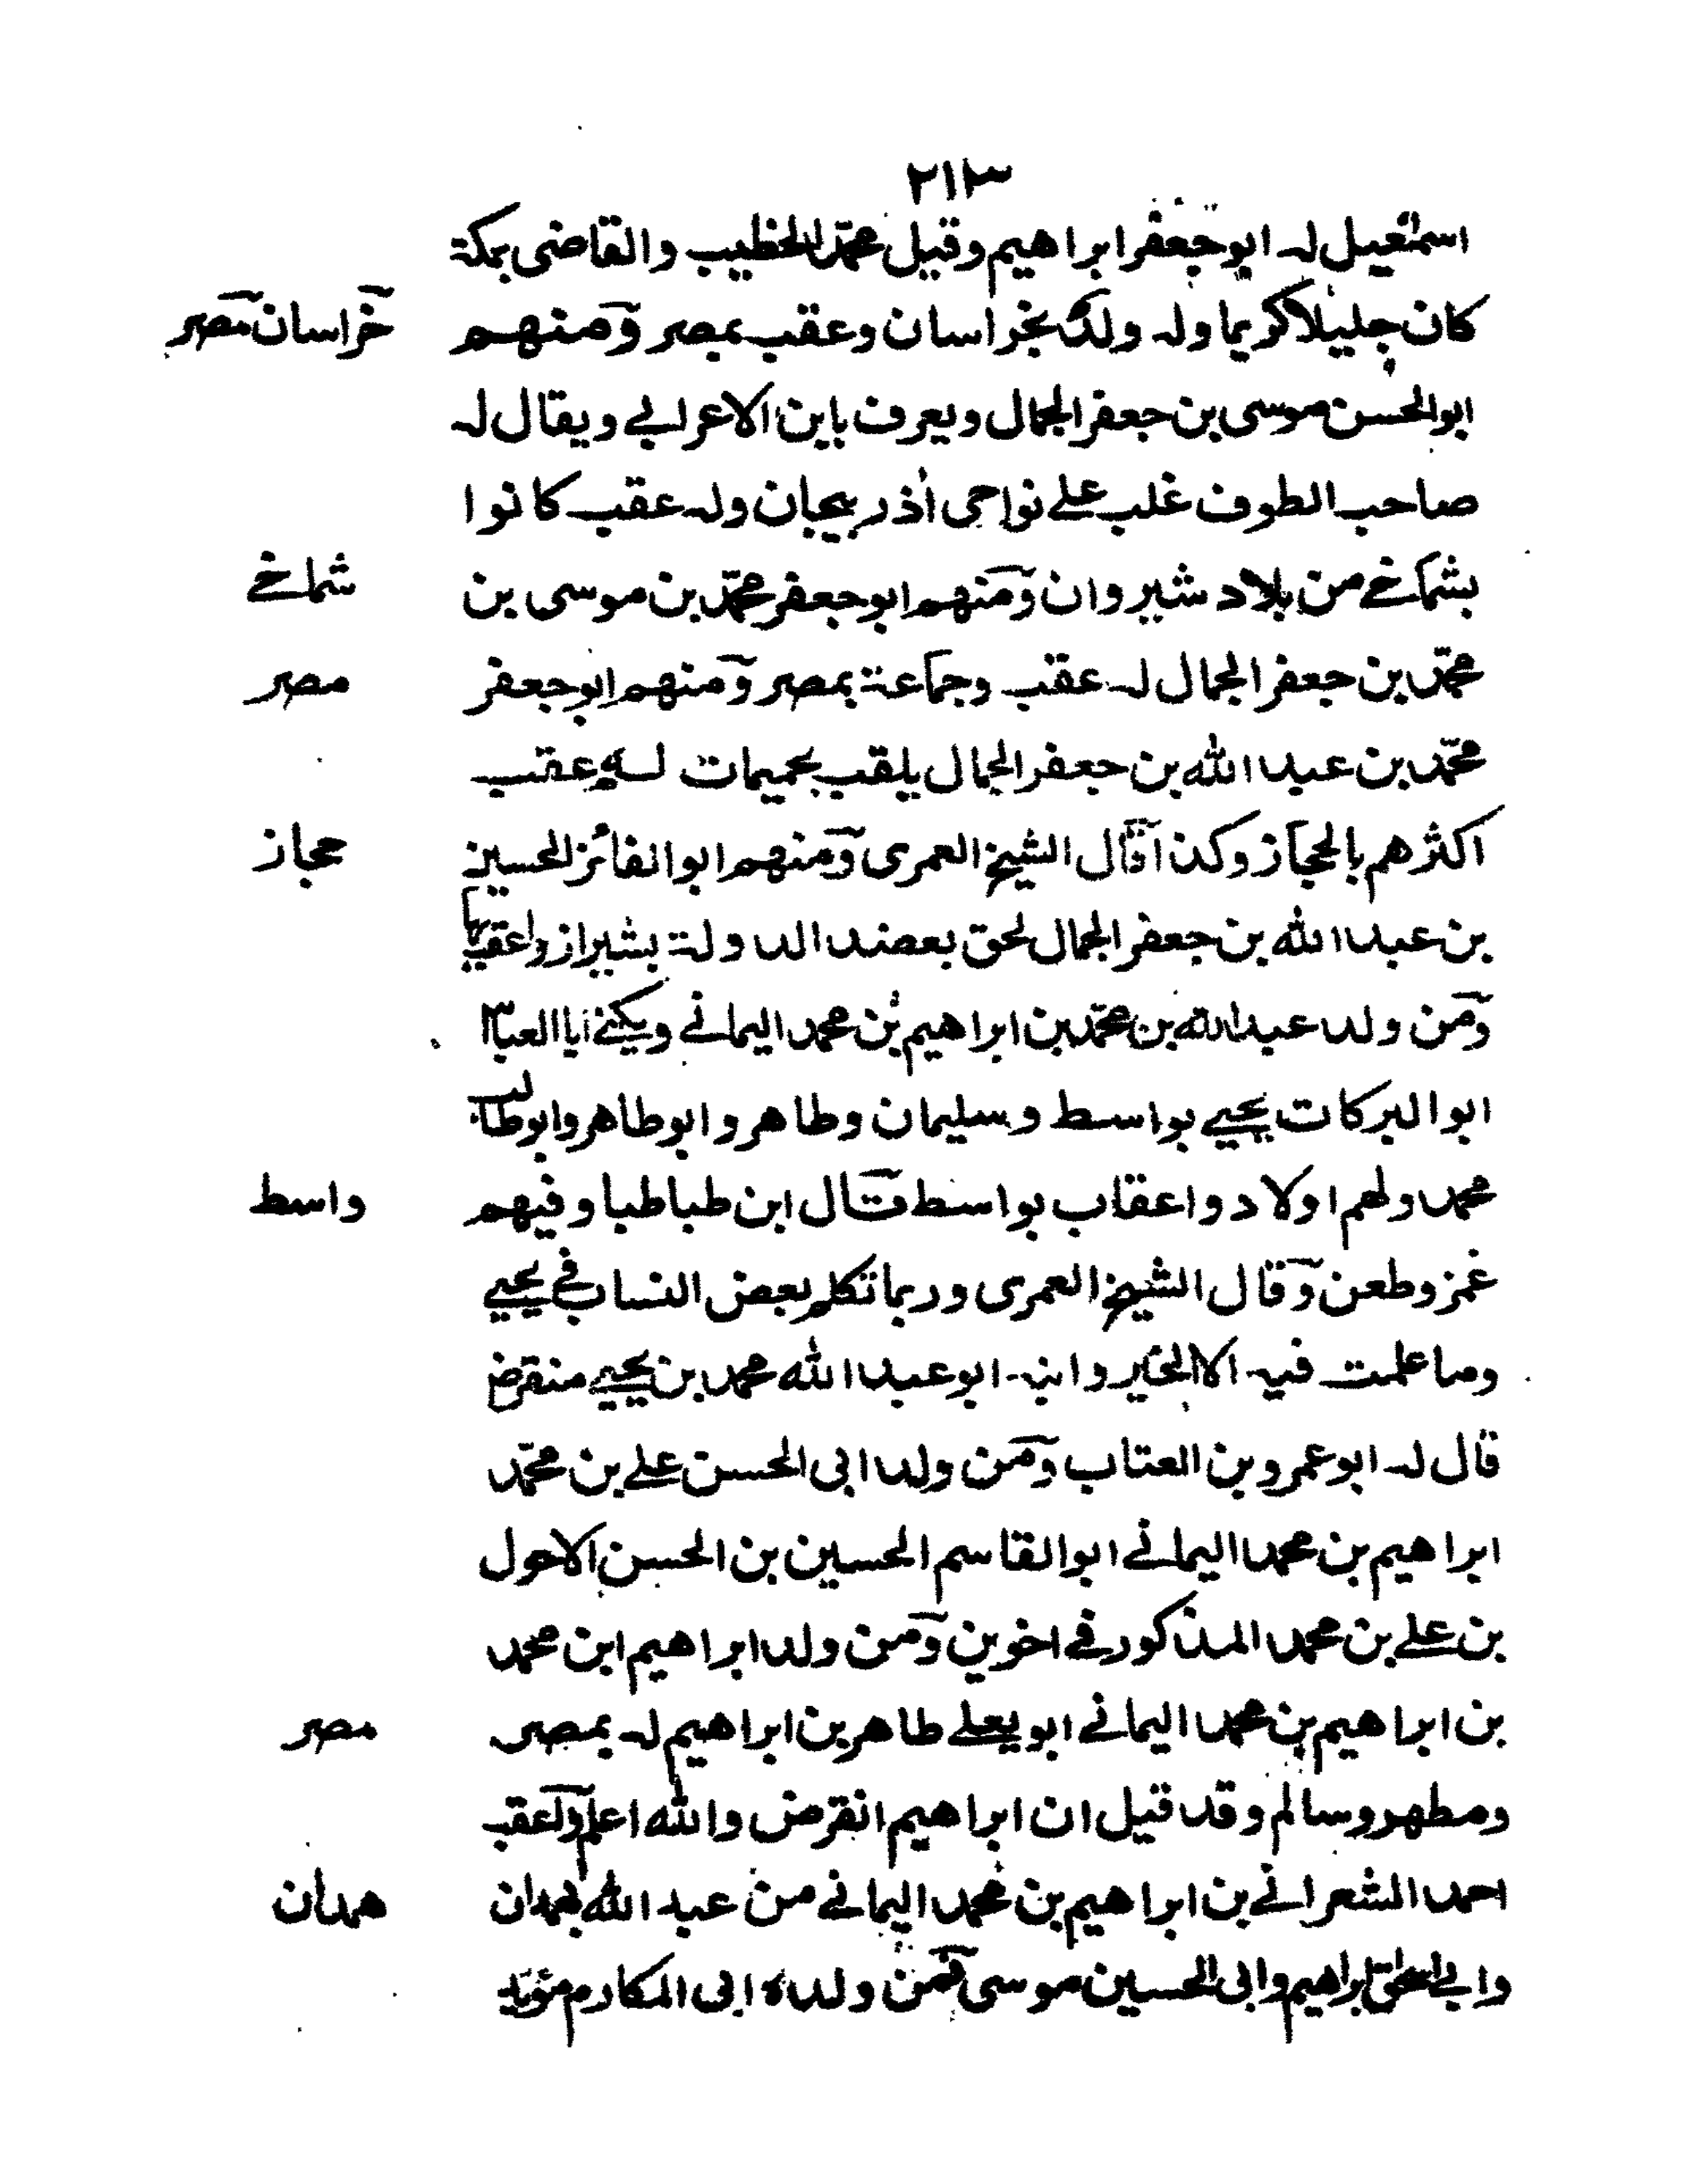 ٢١٣
اسمعيل له ابوجعفر ابراهيم وقيل محمّد الخطيب والقاضى بمكة
كان جليلا كريما وله ولد بخراسان وعقب بمصر ومنهم
خراسان مصر
ابوالحسن موسى بن جعفر الجمال ويعرف بابن الاعرابي ويقال له
صاحب الطوف غلب على نواحى أذربيجان وله عقب كانوا
بشماخي من بلاد شيروان ومنهم ابوجعفر محمّد بن موسى بن
شماخي
محمّد بن جعفر الجمال له عقب وجماعة بمصر ومنهم ابوجعفر
مصر
محمّد بن عبد الله بن جعفر الجمال يلقب بحميمات له عقب
اكثرهم بالحجاز وكذا قال الشيخ العمرى ومنهم ابوالفائز الحسين
حجاز
بن عبد الله بن جعفر الجمال لحق بعضد الدولة بشيراز واعقب بها
ومن ولد عبد الله بن محمّد بن ابراهيم بن محمد اليماني ويكنى ابا العباس
ابو البركات يحيى بواسط وسليمان وطاهر وابوطاهر وابوطالب
محمد ولهم اولاد واعقاب بواسط قال ابن طباطبا وفيهم
واسط
غمز وطعن وقال الشيخ العمرى وربما تكلم بعض النساب في يحيى
وما علمت فيه الا الخير وابنه ابو عبد الله محمد بن يحيى منقرض
قال له ابوعمرو بن العتاب ومن ولد ابى الحسن علي بن محمّد
ابراهيم بن محمد اليماني ابوالقاسم الحسين بن الحسن الاحول
بن علي بن محمد المذكور في اخوين ومن ولد ابراهيم ابن محمد
بن ابراهيم بن محمد اليماني ابو يعلى طاهر بن ابراهيم له بمصر
مصر
ومطهر وسالم وقد قيل ان ابراهيم انقرض والله اعلم واعقب
احمد الشعراني بن ابراهيم بن محمد اليماني من عبد الله بهمدان
همدان
وابي اسحق ابراهيم وابى الحسين موسى فمن ولده ابى المكارم